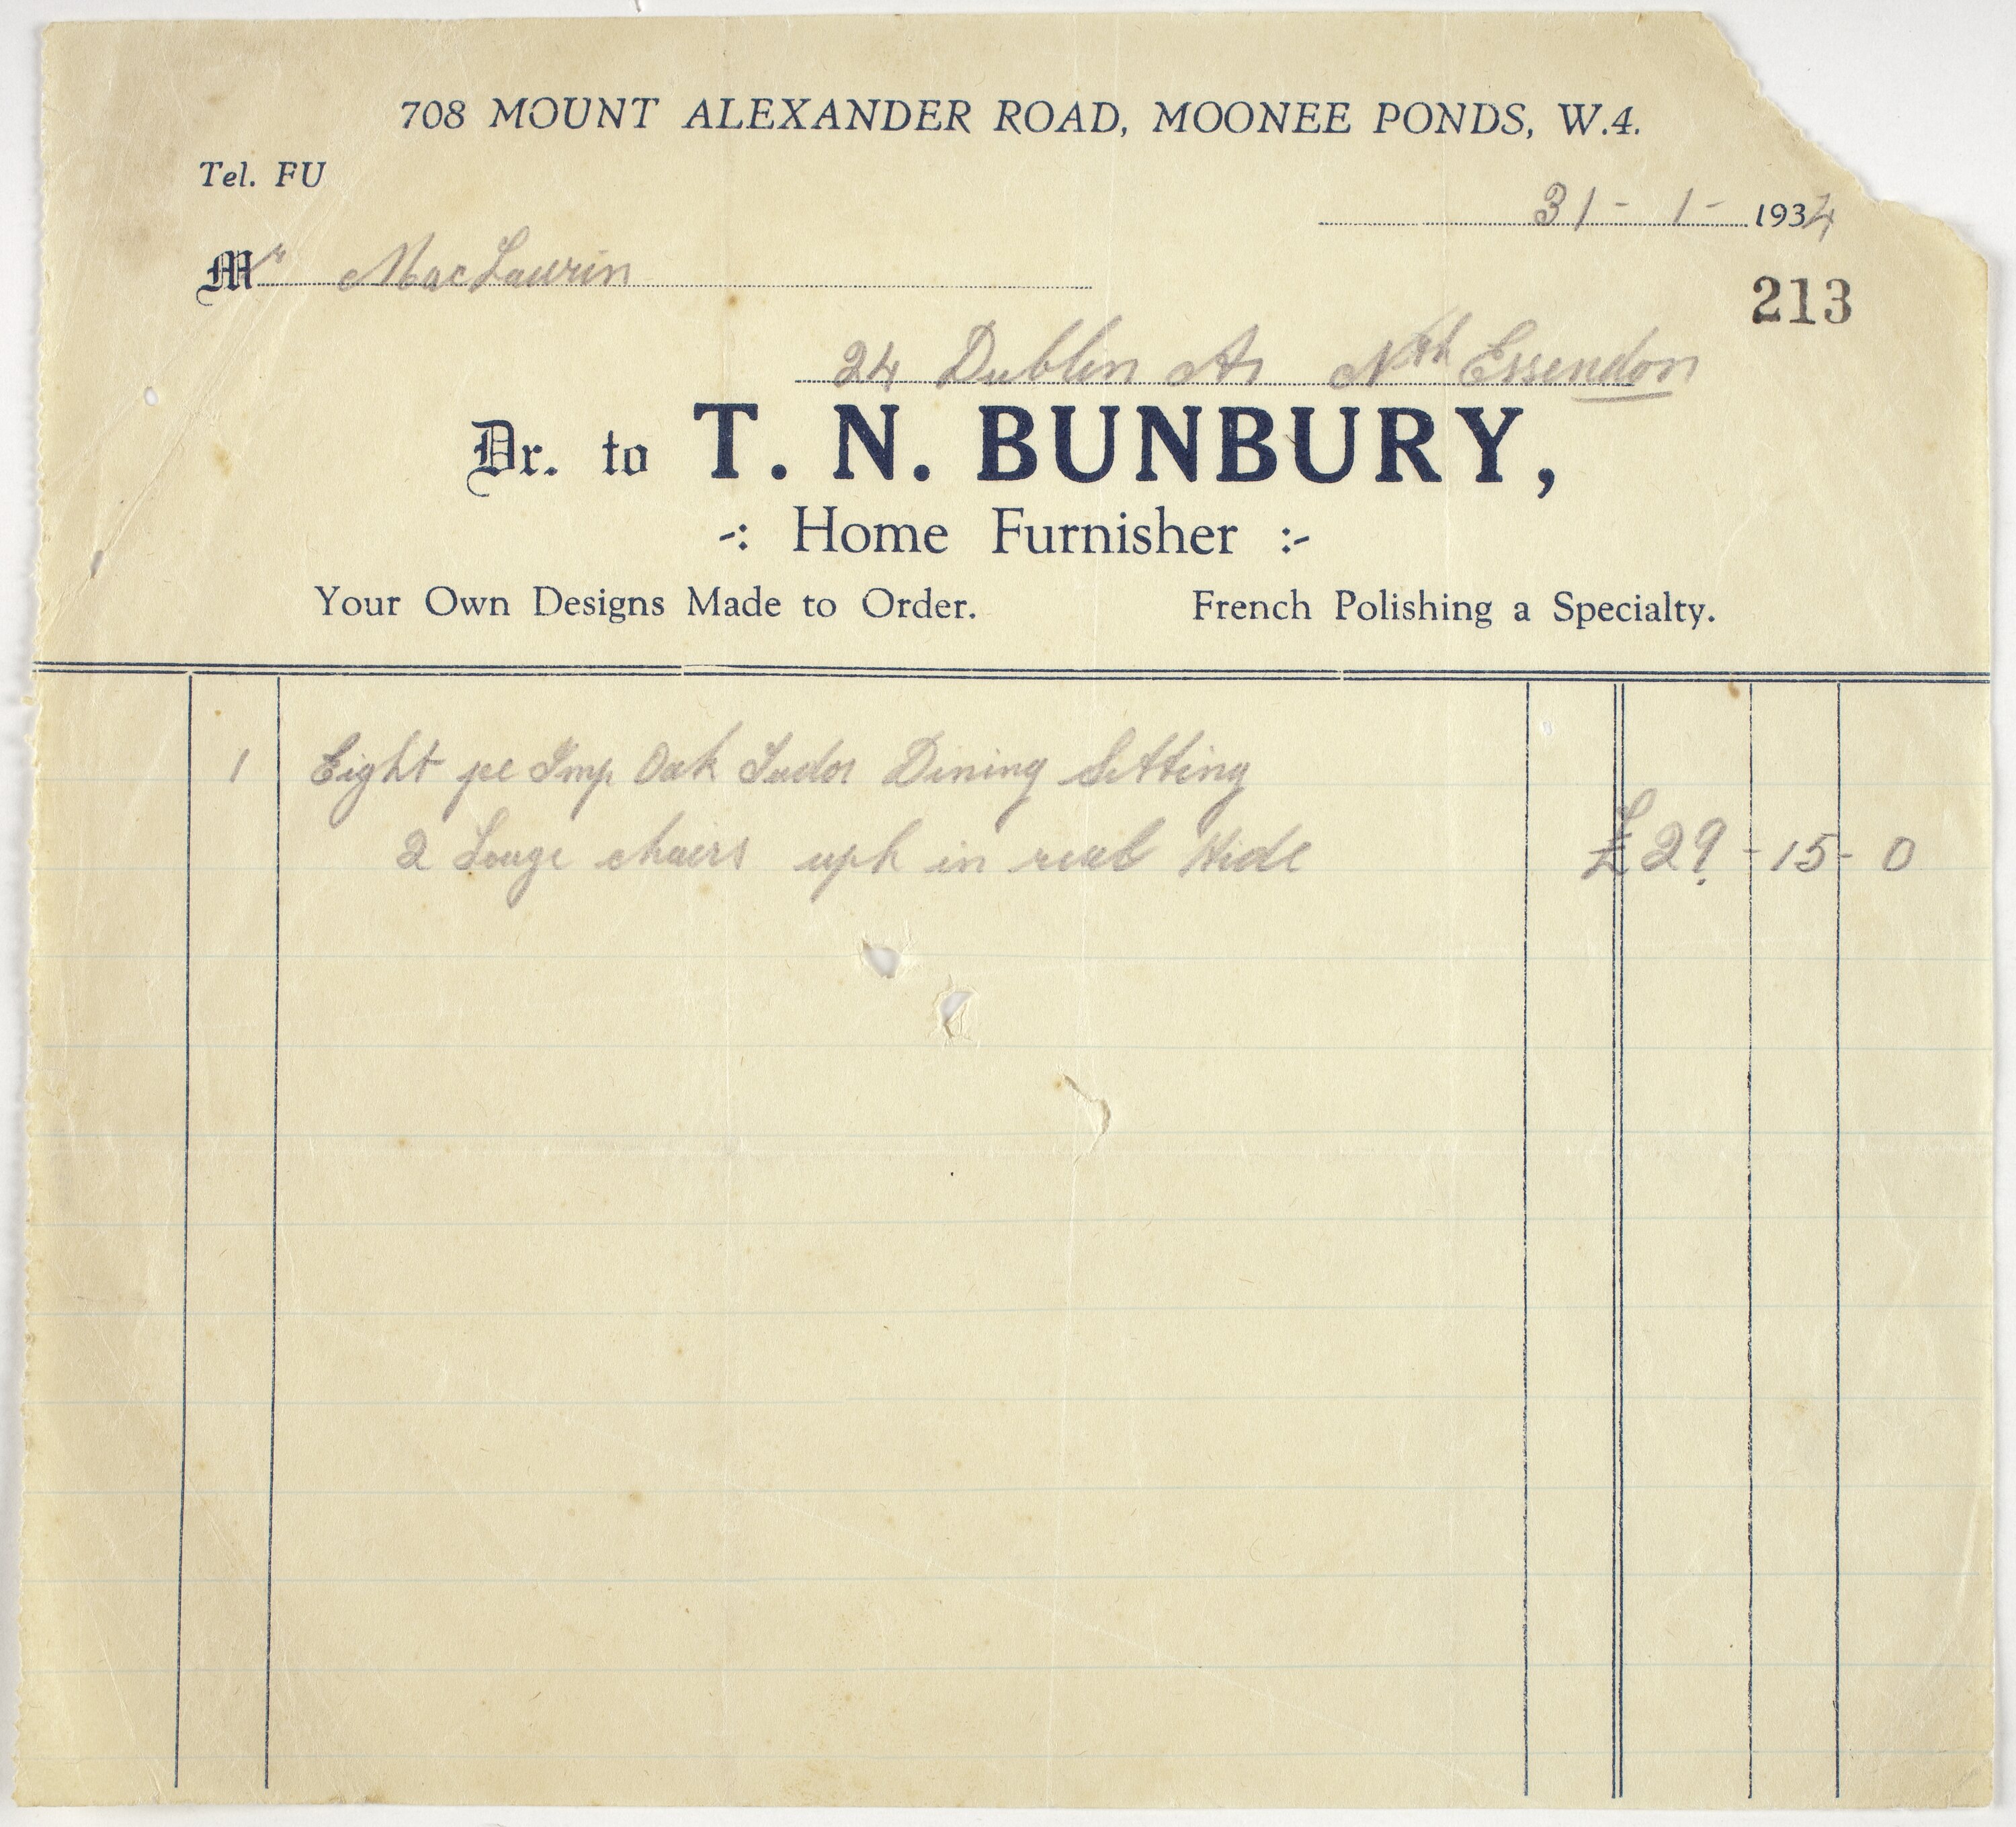 708 MOUNT ALEXANDER ROAD, MOONEE PONDS, W.4.
Tel. FU
31 - 1 - 1934
Mr MacLaurin
213
24 Dublin Av Nth Essendon
Dr. to T. N. BUNBURY,
-: Home Furnisher :-
Your Own Designs Made to Order. French Polishing a Specialty.
1 Eight pce Imp Oak Tudor Dining Setting
2 Louge chairs uph in real Hide £29 - 15 - 0